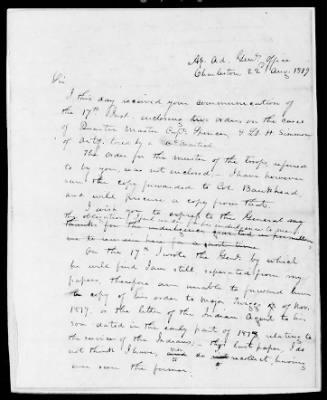 Ap. Ad. Genl's Office
Charleston 22d Aug 1819
Sir
I this day received your communication of
the 17th Inst. enclosing two orders on the cases
of Quarter Master Capt. Spencer & Lt. H. Simmon
of Arty. tried by a Ct Martial
The order for the muster of the troops referred
to by you, was not enclosed – I have however
seen the copy forwarded to Col. Bankhead
and will procure a copy from that.
I wish you to express to the General my
thanks for the indulgence granted in permitting
me to remain here for a short time
On the 17th I wrote the Genl. by which
he will find I am still separated from my
papers, therefore am unable to forward him
a copy of his order to Major Twiggs of Nov.
1817, or the letter of the Indian Agent to his
son dated in the early part of 1818 relating to
the services of the Indians, – the last paper, I do
not think I have, nor do recollect, having
ever seen the former.